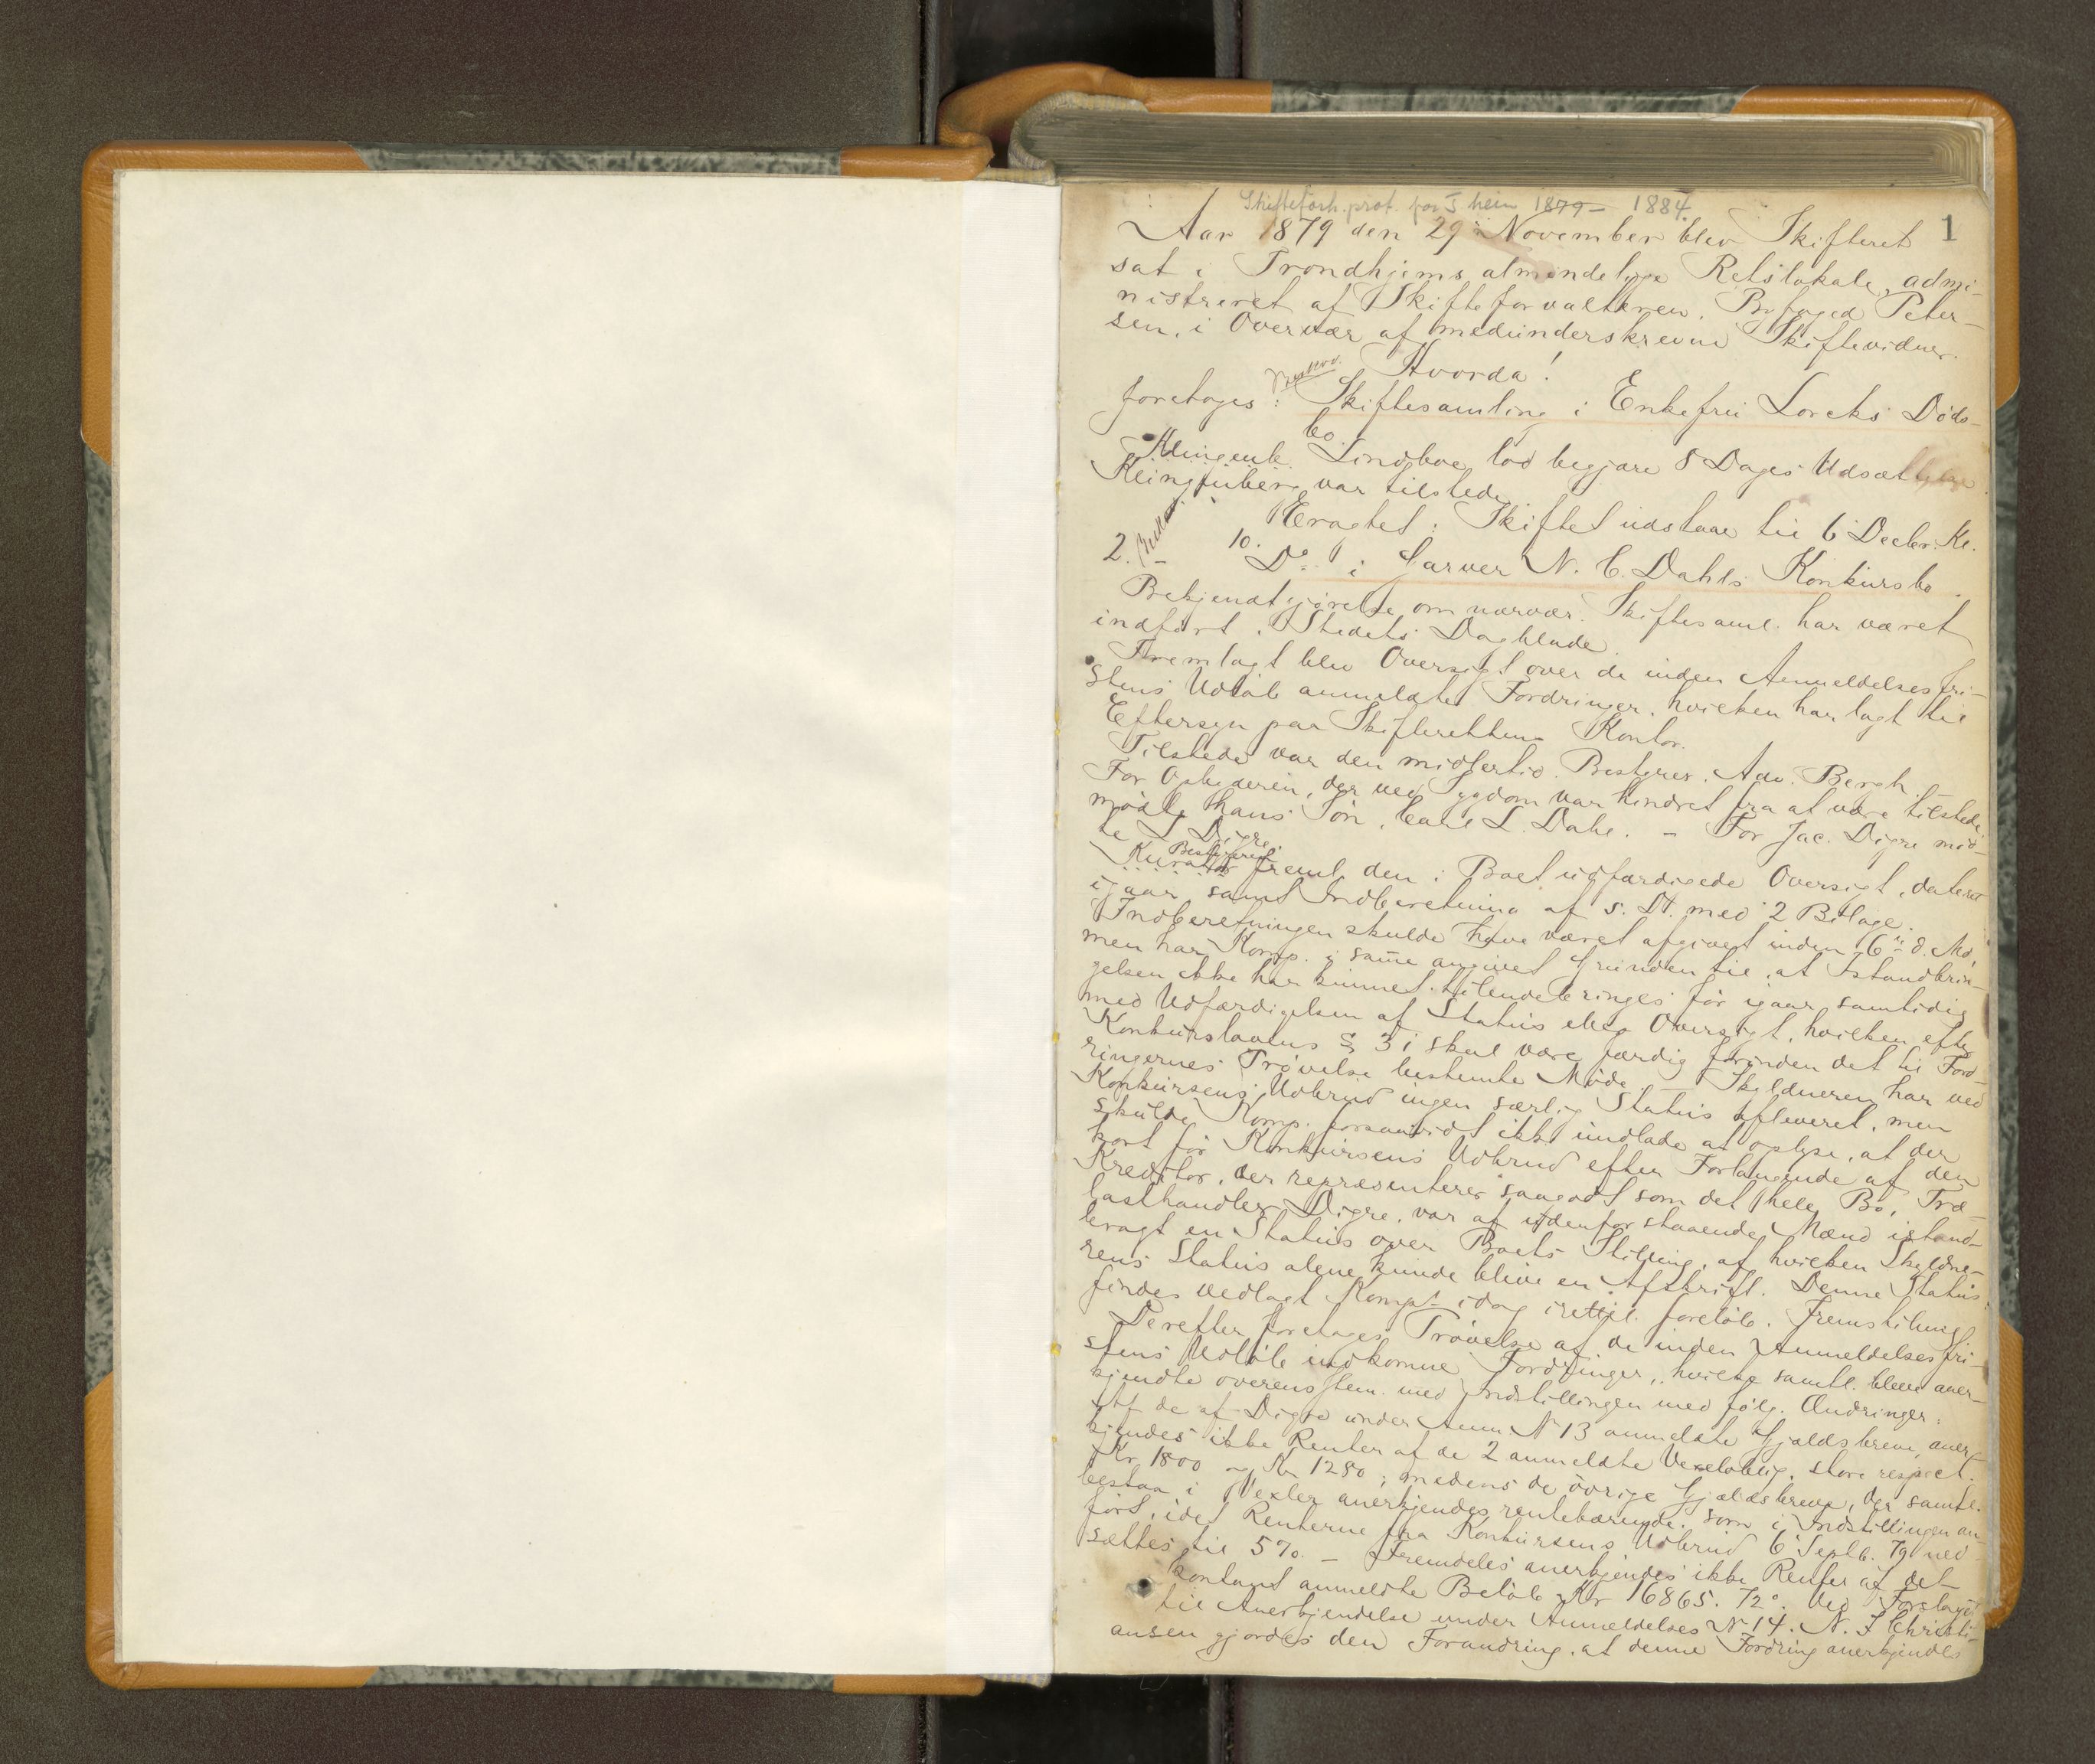 Skifteforh. prot. for T.heim 1879 - 1884.
1
Aar 1879 den 29 November blev Skifteret
sat i Trondhjems almindelige Retslokale, admi-
nistreret af Skifteforvalteren, Byfoged Peter-
sen, i Overvær af medunderskrevne Skiftevidner.
Hvorda!
foretoges: Skiftesamling i Enkefru Lorcks Døds-
bo.
Klingenb. Lindboe lod begjære 8 Dages Udsættelse
Klingenberg var tilstede
Eragtet: Skiftet udstaar til 6 Decbr. Kl.
10.
2. Do i Garver N. C. Dahls Konkursbo.
Bekjendtgjørelse om nærvær. Skiftesaml. har været
indført i Stedets Dagblade.
Fremlagt blev Oversigt over de inden Anmeldelsesfri-
stens Udløb anmeldte Fordringer, hvilken har lagt til
Eftersyn paa Skifterettens Kontor.
Tilstede var den midlertid. Bestyrer, Adv. Bergh.
For Opbyderen, der ved Sygdom var hindret fra at være tilstede,
mødte hans Søn, Carl L. Dahl. - For Jac. Digre mød-
te L. Digre.
Bestyreren
Kurator freml. den i Boet udfærdigede Oversigt, dateret
igaar samt Indberetning af s. Dt. med 2 Bilage.
Indberetningen skulde have været afgivet inden 6te d. Md,
men har Komp. i samme angivet Grunden til, at Istandbrin-
gelsen ikke har kunnet tilendebringes før igaar, samtidig
med Udfærdigelsen af Status eller Oversigt, hvilken efter
Konkurslovens § 31 skal være færdig forinden det til Ford-
ringernes Prøvelse bestemte Møde. - Skyldneren har ved
Konkursens Udbrud ingen særlig Status afleveret, men
skulde Komp. forsaavidt ikke undlade at oplyse, at der
kort før Konkursens Udbrud efter Forlangende af den
Kreditor, der repræsenterer saagodt som det hele Bo, Træ-
lasthandler Digre, var af udenforstaaende Mænd istand-
bragt en Status over Boets Stilling, af hvilken Skyldne-
rens Status alene kunde blive en Afskrift. Denne Status
findes vedlagt Komps. idag irettel. foreløb. Fremstilling.
Derefter foretoges Prøvelse af de inden Anmeldelsesfri-
stens Udløb indkomne Fordringer, hvilke samtl. blev aner-
kjendte overensstem. med Indstillingen med følg. Ændringer:
Af de af Digre under Anm No 13 anmeldte Gjældsbreve, aner-
kjendes ikke Renter af de 2 anmeldte Vexelobelig. store respect.
Kr 1800 og Kr 1280, medens de øvrige Gjældsbreve, der samtl.
bestaa i Vexler anerkjendes rentebærende, som i Indstillingen an-
ført, idet Renterne fra Konkursens Udbrud 6 Septb. 79 ned-
sættes til 5%. - Fremdeles anerkjendes ikke Renter af det
kontant anmeldte Beløb Kr 16865. 72. Ved Forslaget
til Anerkjendelse under Anmeldelses No 14. N. J. Christi-
ansen gjordes den Forandring, at denne Fordring anerkjendes